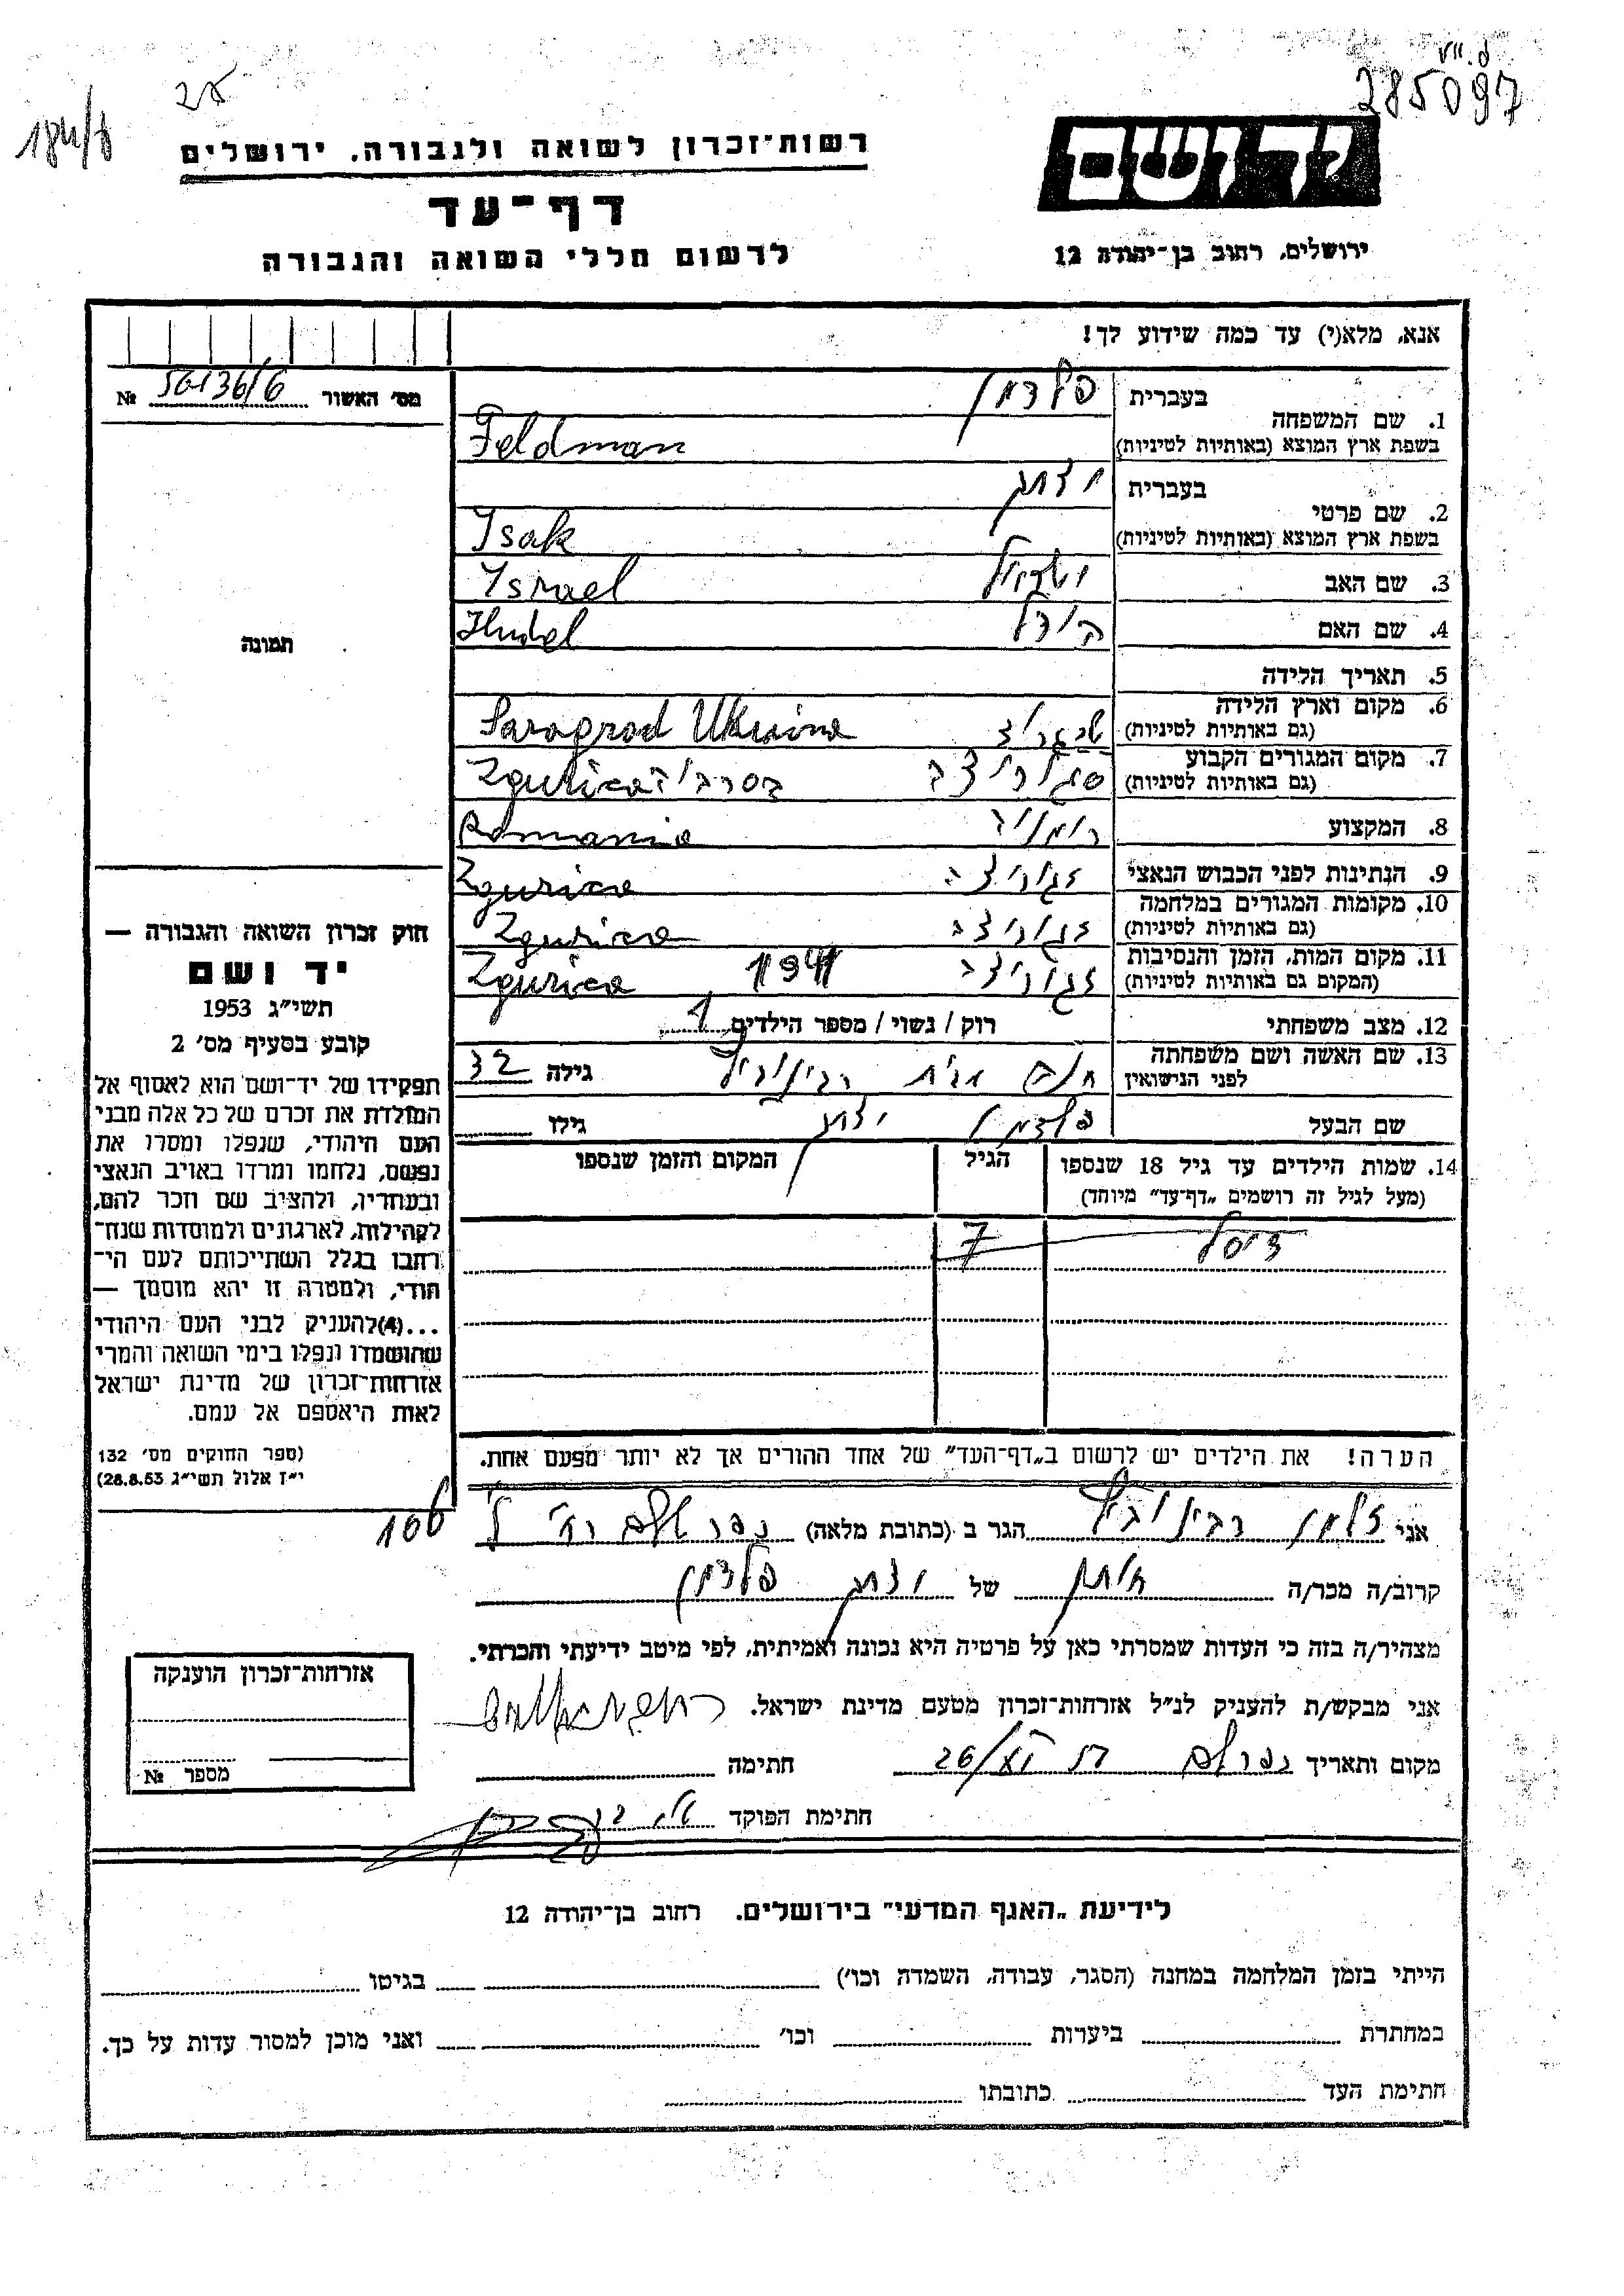 ד. ייוו
285097
184/8
רשות־זכרון לשואה ולגבורה. ירושלים
דף־עד
לרשום חללי השואה והגבורה
ידושם
ירושלים, רחוב בן־יהודה 12
אנא, מלא(י) עד כמה שידוע לך!
מס׳ האשור 56136/6 №
1. שם המשפחה
בעברית פלדמן
בשפת ארץ המוצא (באותיות לטיניות) Feldman
2. שם פרטי
בעברית יצחק
בשפת ארץ המוצא (באותיות לטיניות) Isak
3. שם האב ישראל Israel
4. שם האם הודל Hudel
5. תאריך הלידה
6. מקום וארץ הלידה
(גם באותיות לטיניות) Sarogrod Ukraine
7. מקום המגורים הקבוע
(גם באותיות לטיניות) בסרביה Zgurica
8. המקצוע רומניה Romania
9. הנתינות לפני הכבוש הנאצי זגוריצה Zgurica
10. מקומות המגורים במלחמה
(גם באותיות לטיניות) זגוריצה Zgurica
11. מקום המות, הזמן והנסיבות
(המקום גם באותיות לטיניות) זגוריצה 1941 Zgurica
12. מצב משפחתי רוק / נשוי / מספר הילדים 1
13. שם האשה ושם משפחתה
לפני הנישואין חנה רבינוביץ גילה 32
שם הבעל פלדמן יצחק גילו
14. שמות הילדים עד גיל 18 שנספו הגיל המקום והזמן שנספו
(מעל לגיל זה רושמים „דף־עד״ מיוחד)
7
הערה! את הילדים יש לרשום ב„דף־העד״ של אחד ההורים אך לא יותר מפעם אחת.
תמונה
חוק זכרון השואה והגבורה —
יד ושם
תשי״ג 1953
קובע בסעיף מס׳ 2
תפקידו של יד־ושם הוא לאסוף אל
המולדת את זכרם של כל אלה מבני
העם היהודי, שנפלו ומסרו את
נפשם, נלחמו ומרדו באויב הנאצי
ובעוזריו, ולהציב שם וזכר להם,
לקהילות, לארגונים ולמוסדות שנח־
רבו בגלל השתייכותם לעם הי־
הודי, ולמטרה זו יהא מוסמך —
...(4)להעניק לבני העם היהודי
שהושמדו ונפלו בימי השואה והמרי
אזרחות־זכרון של מדינת ישראל
לאות היאספם אל עמם.
(ספר החוקים מס׳ 132
י״ז אלול תשי״ג 28.8.53)
אני זלמן רבינוביץ הגר ב (כתובת מלאה)
קרוב/ה מכר/ה חותן של יצחק פלדמן
מצהיר/ה בזה כי העדות שמסרתי כאן על פרטיה היא נכונה ואמיתית, לפי מיטב ידיעתי והכרתי.
אני מבקש/ת להעניק לנ״ל אזרחות־זכרון מטעם מדינת ישראל.
מקום ותאריך חתימה
חתימת הפוקד
אזרחות־זכרון הוענקה
מספר №
לידיעת „האגף המדעי״ בירושלים. רחוב בן־יהודה 12
הייתי בזמן המלחמה במחנה (הסגר, עבודה, השמדה וכו׳) בגיטו
במחתרת ביערות וכו׳ ואני מוכן למסור עדות על כך.
חתימת העד כתובתו